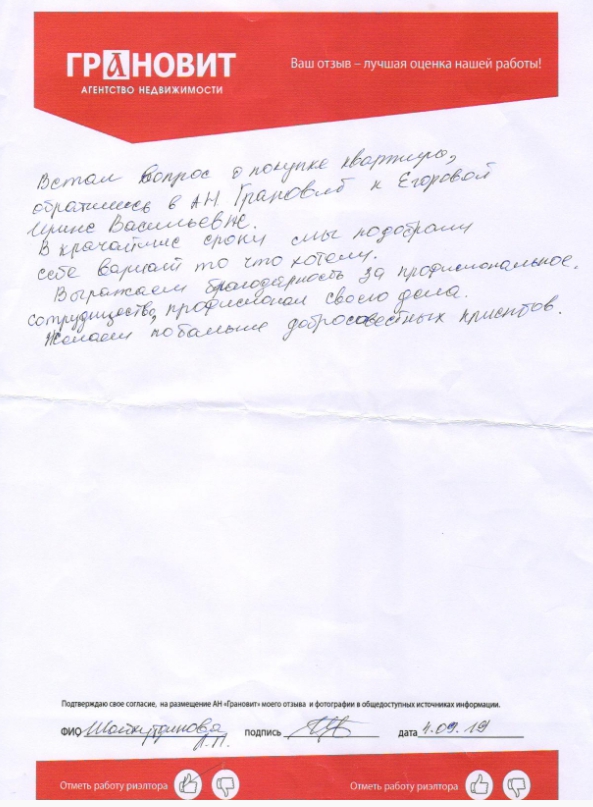 ГРАНОВИТ
АГЕНТСТВО НЕДВИЖИМОСТИ
Ваш отзыв – лучшая оценка нашей работы!
Встал вопрос о покупке квартиры,
обратились в АН Грановит к Егоровой
Ирине Васильевне.
В крачайшие сроки мы подобрали
себе вариант то что хотели.
Выражаем благодарность за профисиональное.
сотрудищество, профисионал своего дела.
Желаем побальше добросовестных клиентов.
Подтверждаю свое согласие, на размещение АН «Грановит» моего отзыва и фотографии в общедоступных источниках информации.
ФИО подпись дата 4.09.19
Отметь работу риэлтора Отметь работу риэлтора